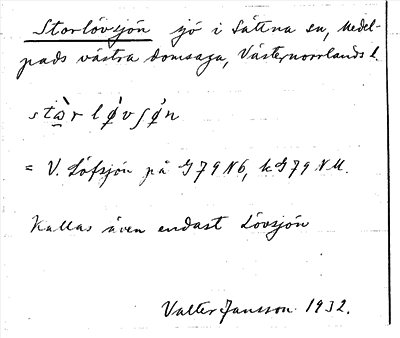 Storlövsjön sjö i Sättna sn, Medel-
pads västra domsaga, Västernorrlands l.
= V. Löfsjön på G79 N6, kG79 NU.
Kallas även endast Lövsjön
Valter Jansson 1932.